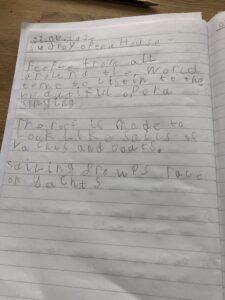 Sydney opera House
People from all
around the world
come to listen to the
beautiful opera
singing
The roof is made to
look like sails of
yachts and boats.
sailing groups race
on yachts